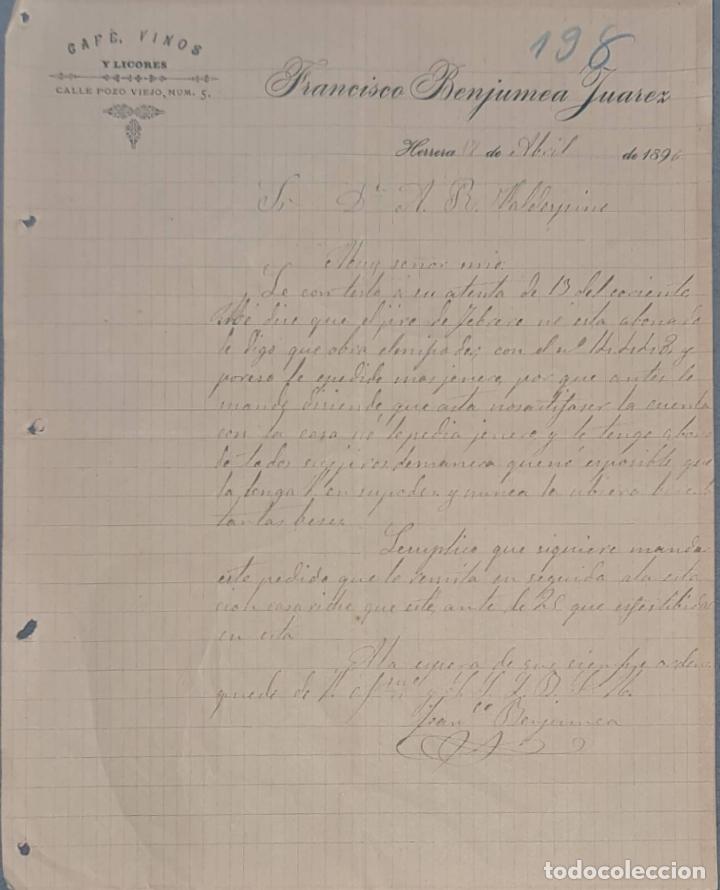 CAFÉ, VINOS
Y LICORES
CALLE POZO VIEJO, NUM. 5.
198
Francisco Benjumea Juarez
Herrera 17 de Abril de 1896
Sr Dn A. R. Valdespino
Muy señor mio
Le contesto á su atenta de 13 del coriente
Me dise que el jiro de Febrero no esta abonado
le digo que obra en mi poder con el nº 14443 y
por eso le epedido mas jenero, por que antes le
mande disiendo que asta no sartifaser la cuenta
con la casa no le pedia jenero y le tengo abona
do todos sus jiros de manera que no es posible que
la tenga V. en su poder y nunca lo ubiera
tantas beses
Le suplico que si quiere mandar
este pedido que lo remita en seguida a la esta
cion casariche que este ante de 25 que es festibidad
en esta
A la espera de sus siempre ordenes
quedo de V. S. S. Q. B. S. M.
Franco Benjumea
todocoleccion.net